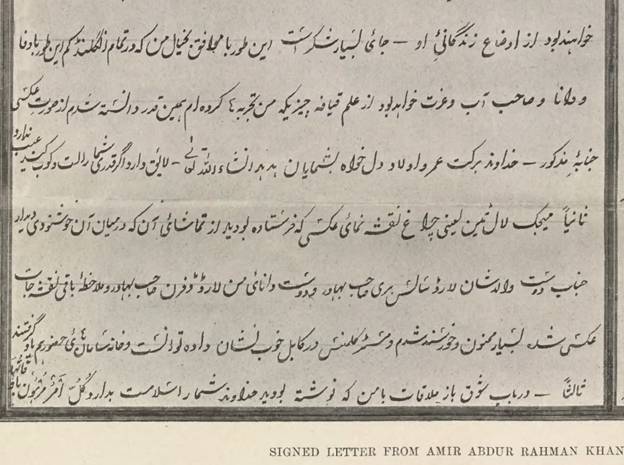 خواهد بود از اوضاع زندگانی او — جای بسیار شکر است این طور با موافق بخیال من که در تمام انگلند کم این طور با وفا
و دانا و صاحب آب و عزت خواهد بود از علم قیافه چیزیکه من تجربه کرده ام همین قدر دانسته شدم از صورت عکسی
جنابه مذکور — خداوند برکت عمر و اولاد دل خواه بشمایان بدهد انشاء الله تعالی — لائق دارد اگر قدری شما را
ندارد
ثانیاً میجک لال تین یعنی چراغ نقشه نمای عکسی که فرستاده بودید از تماشای آن که در میان آن خوشنودی دیدار
جناب دوست والاشان لارد سالسبری صاحب بهادر و دوست دانای من لارد دفرن صاحب بهادر و ملاحظه باقی نقشه جات
عکسی شد بسیار ممنون و خورسند شدم و مستر کلمنس در کابل خوب نشان داده توانست و خانه سامان های حضورم یاد
گرفتند
ثالثاً — در باب شوق باز ملاقات با من که نوشته بودید خداوند شما را سلامت بدارد کل امر مرهون
SIGNED LETTER FROM AMIR ABDUR RAHMAN KHAN